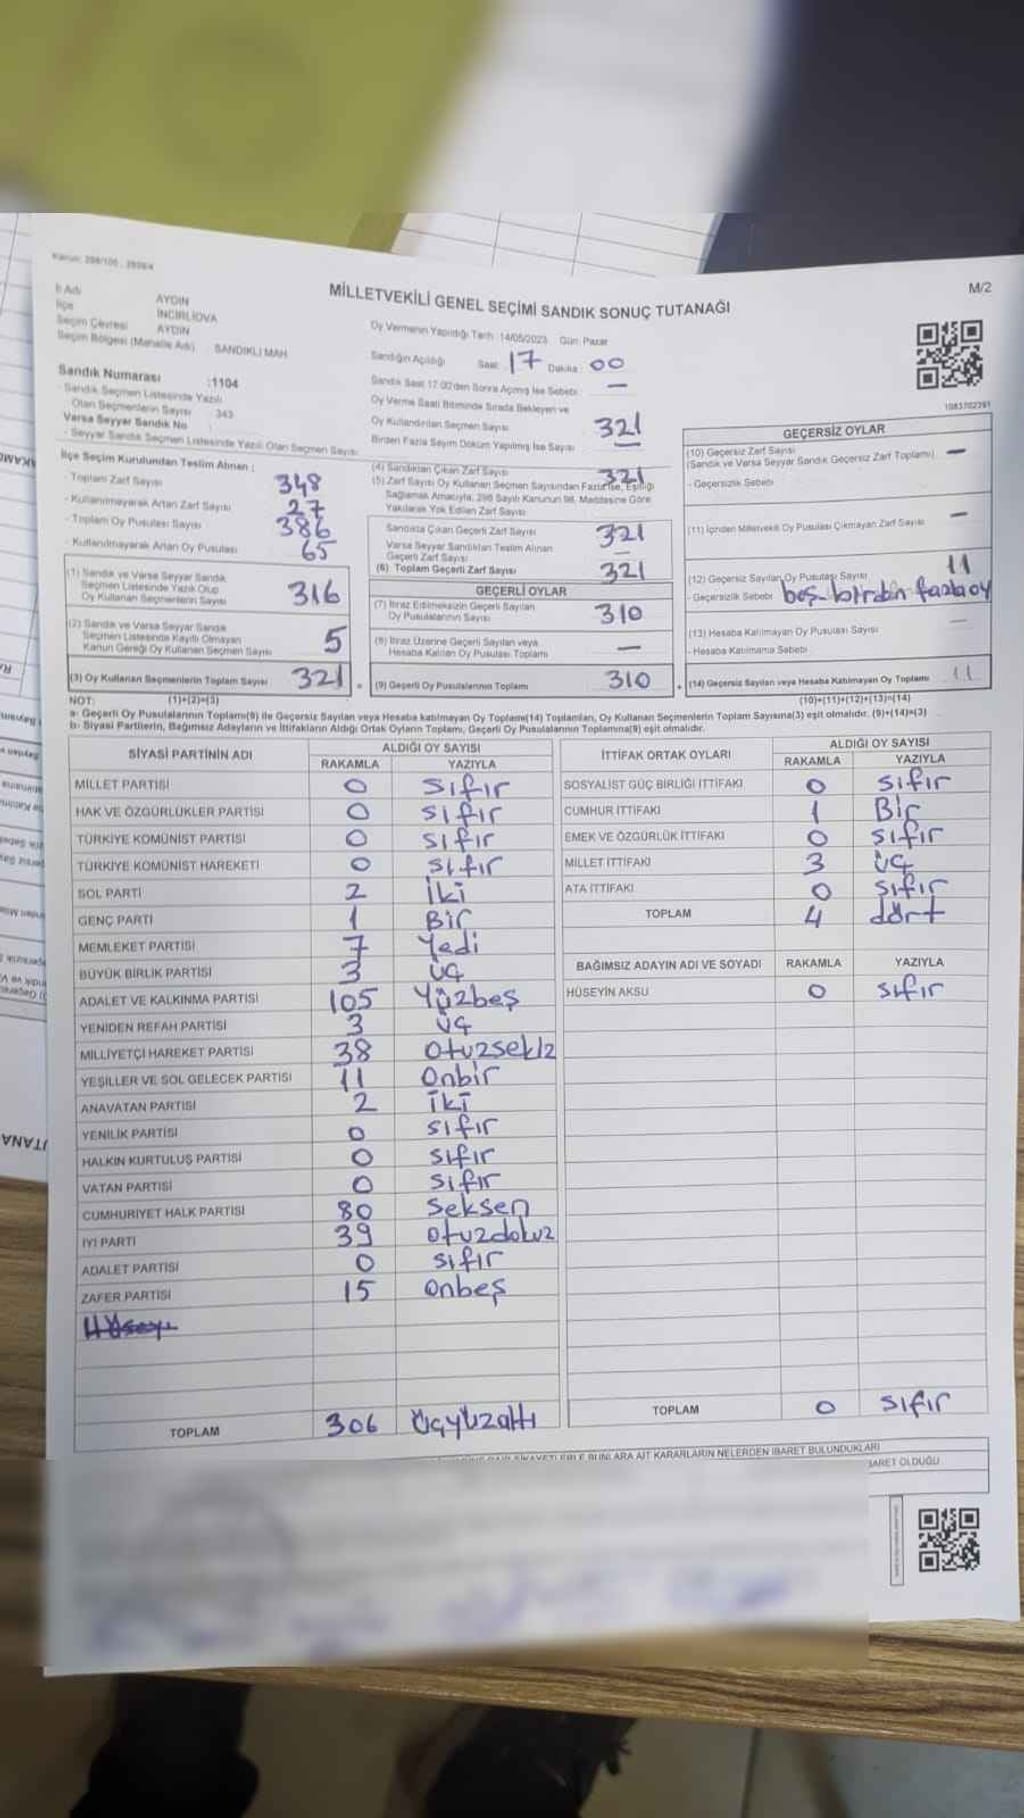 Kanun: 298/105 , 2839/4
M/2
MİLLETVEKİLİ GENEL SEÇİMİ SANDIK SONUÇ TUTANAĞI
İl Adı AYDIN
İlçe İNCİRLİOVA
Seçim Çevresi AYDIN
Seçim Bölgesi (Mahalle Adı) SANDIKLI MAH.
Sandık Numarası :1104
- Sandık Seçmen Listesinde Yazılı
Olan Seçmenlerin Sayısı 343
Varsa Seyyar Sandık No
- Seyyar Sandık Seçmen Listesinde Yazılı Olan Seçmen Sayısı
Oy Vermenin Yapıldığı Tarih :14/05/2023 Gün: Pazar
Sandığın Açıldığı Saat: 17 Dakika : 00
Sandık Saat 17.00'den Sonra Açılmış İse Sebebi: —
Oy Verme Saati Bitiminde Sırada Bekleyen ve
Oy Kullandırılan Seçmen Sayısı 321
Birden Fazla Sayım Döküm Yapılmış İse Sayısı —
1083702391
İlçe Seçim Kurulundan Teslim Alınan :
- Toplam Zarf Sayısı 348
- Kullanılmayarak Artan Zarf Sayısı 27
- Toplam Oy Pusulası Sayısı 386
- Kullanılmayarak Artan Oy Pusulası 65
(1) Sandık ve Varsa Seyyar Sandık
Seçmen Listesinde Yazılı Olup
Oy Kullanan Seçmenlerin Sayısı 316
(2) Sandık ve Varsa Seyyar Sandık
Seçmen Listesinde Kayıtlı Olmayan
Kanun Gereği Oy Kullanan Seçmen Sayısı 5
(3) Oy Kullanan Seçmenlerin Toplam Sayısı 321
(4) Sandıktan Çıkan Zarf Sayısı 321
(5) Zarf Sayısı Oy Kullanan Seçmen Sayısından Fazla İse, Eşitliği
Sağlamak Amacıyla, 298 Sayılı Kanunun 98. Maddesine Göre
Yakılarak Yok Edilen Zarf Sayısı
Sandıkta Çıkan Geçerli Zarf Sayısı 321
Varsa Seyyar Sandıktan Teslim Alınan
Geçerli Zarf Sayısı —
(6) Toplam Geçerli Zarf Sayısı 321
GEÇERLİ OYLAR
(7) İtiraz Edilmeksizin Geçerli Sayılan
Oy Pusulalarının Sayısı 310
(8) İtiraz Üzerine Geçerli Sayılan veya
Hesaba Katılan Oy Pusulası Toplamı —
(9) Geçerli Oy Pusulalarının Toplamı 310
GEÇERSİZ OYLAR
(10) Geçersiz Zarf Sayısı —
(Sandık ve Varsa Seyyar Sandık Geçersiz Zarf Toplamı)
- Geçersizlik Sebebi
(11) İçinden Milletvekili Oy Pusulası Çıkmayan Zarf Sayısı —
(12) Geçersiz Sayılan Oy Pusulası Sayısı 11
- Geçersizlik Sebebi boş-birden fazla oy
(13) Hesaba Katılmayan Oy Pusulası Sayısı —
- Hesaba Katılmama Sebebi
(14) Geçersiz Sayılan veya Hesaba Katılmayan Oy Toplamı 11
NOT: (1)+(2)=(3) (10)+(11)+(12)+(13)=(14)
a- Geçerli Oy Pusulalarının Toplamı(9) ile Geçersiz Sayılan veya Hesaba katılmayan Oy Toplamı(14) Toplamları, Oy Kullanan Seçmenlerin Toplam Sayısına(3) eşit olmalıdır. (9)+(14)=(3)
b- Siyasi Partilerin, Bağımsız Adayların ve İttifakların Aldığı Ortak Oyların Toplamı, Geçerli Oy Pusulalarının Toplamına(9) eşit olmalıdır.
SİYASİ PARTİNİN ADI ALDIĞI OY SAYISI
RAKAMLA YAZIYLA
MİLLET PARTİSİ 0 sıfır
HAK VE ÖZGÜRLÜKLER PARTİSİ 0 sıfır
TÜRKİYE KOMÜNİST PARTİSİ 0 sıfır
TÜRKİYE KOMÜNİST HAREKETİ 0 sıfır
SOL PARTİ 2 İki
GENÇ PARTİ 1 Bir
MEMLEKET PARTİSİ 7 Yedi
BÜYÜK BİRLİK PARTİSİ 3 üç
ADALET VE KALKINMA PARTİSİ 105 Yüzbeş
YENİDEN REFAH PARTİSİ 3 üç
MİLLİYETÇİ HAREKET PARTİSİ 38 otuzsekiz
YEŞİLLER VE SOL GELECEK PARTİSİ 11 Onbir
ANAVATAN PARTİSİ 2 İki
YENİLİK PARTİSİ 0 sıfır
HALKIN KURTULUŞ PARTİSİ 0 sıfır
VATAN PARTİSİ 0 sıfır
CUMHURİYET HALK PARTİSİ 80 Seksen
İYİ PARTİ 39 otuzdokuz
ADALET PARTİSİ 0 sıfır
ZAFER PARTİSİ 15 onbeş
TOPLAM 306 Üçyüzaltı
İTTİFAK ORTAK OYLARI ALDIĞI OY SAYISI
RAKAMLA YAZIYLA
SOSYALİST GÜÇ BİRLİĞİ İTTİFAKI 0 sıfır
CUMHUR İTTİFAKI 1 Bir
EMEK VE ÖZGÜRLÜK İTTİFAKI 0 sıfır
MİLLET İTTİFAKI 3 üç
ATA İTTİFAKI 0 sıfır
TOPLAM 4 dört
BAĞIMSIZ ADAYIN ADI VE SOYADI RAKAMLA YAZIYLA
HÜSEYİN AKSU 0 sıfır
TOPLAM 0 sıfır
BUNLARA AİT KARARLARIN NELERDEN İBARET BULUNDUKLARI